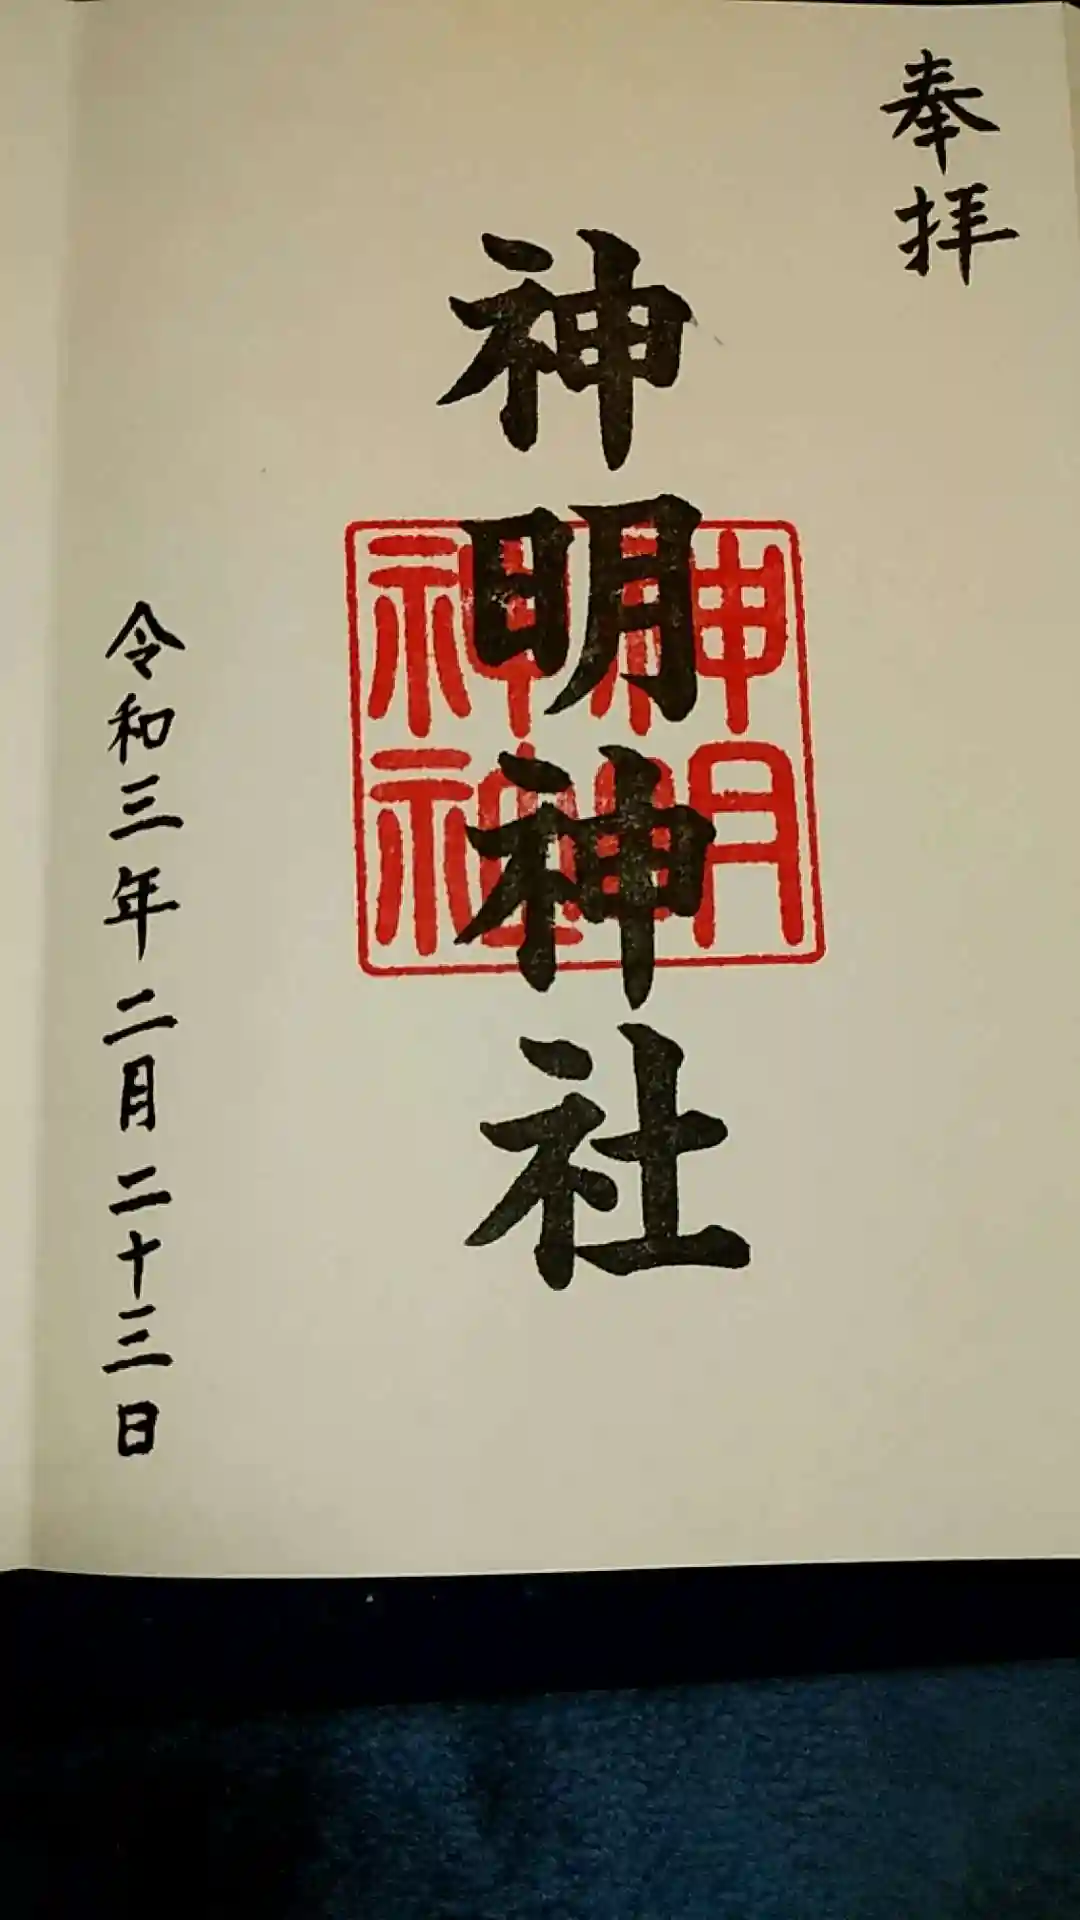 奉拝
神明神社
令和三年二月二十三日